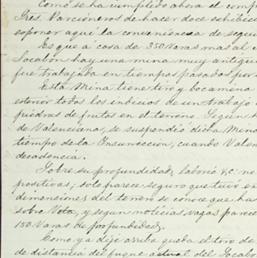 Como se ha cumplido ahora el comp
Sres. Varcioneros de hacer doce
esponer aqui la conveniencia de segui
Es que a cosa de 350 varas mas al
Socabón hay una mina muy antigua
fue trabajada en tiempos pasados por
Esta Mina tiene tiro y bocamina
esterior todos los indicios de un trabajo
piedras de frutas en el terreno. Segun
de Valenciana, se suspendió dicha Mina
tiempo de la Insurreccion, cuando Valen
decadencia.
Sobre su profundidad, laborio &c. no
positivas, solo parece seguro que tuvo
dimensiones del terreno se conoce que has
sobre Veta, y segun noticias vagas parece
150 Varas de profundidad.
Como ya dije arriba queda el tiro de
de distancia del fuque actual del Socabo